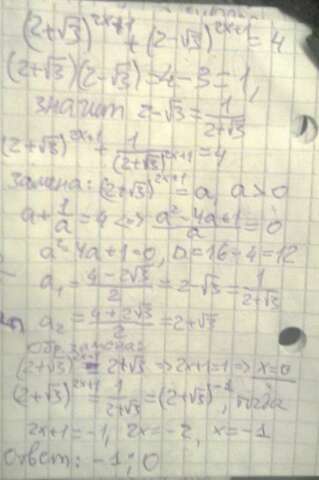 (2+√3)^(2x+1) + (2-√3)^(2x+1) = 4
(2+√3)(2-√3) = 4-3 = 1,
значит 2-√3 = 1/(2+√3)
(2+√3)^(2x+1) + 1/(2+√3)^(2x+1) = 4
замена: (2+√3)^(2x+1) = a, a>0
a + 1/a = 4 <=> (a²-4a+1)/a = 0
a²-4a+1=0, D=16-4=12
a₁ = (4-2√3)/2 = 2-√3 = 1/(2+√3)
a₂ = (4+2√3)/2 = 2+√3
обр. замена:
(2+√3)^(2x+1) = 2+√3 => 2x+1=1 => x=0
(2+√3)^(2x+1) = 1/(2+√3) = (2+√3)^(-1), тогда
2x+1=-1, 2x=-2, x=-1
Ответ: -1; 0